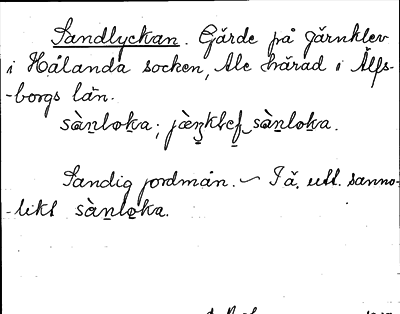 Sandlyckan. Gärde på Järnklev
i Hålanda socken, Ale härad i Älfs-
-borgs län.
sàṉlo̱ka; jæ̀ṉklef sàṉlo̱ka.
Sandig jordmån. – I ä. utt. sanno-
-likt sàṉlo̱ka.